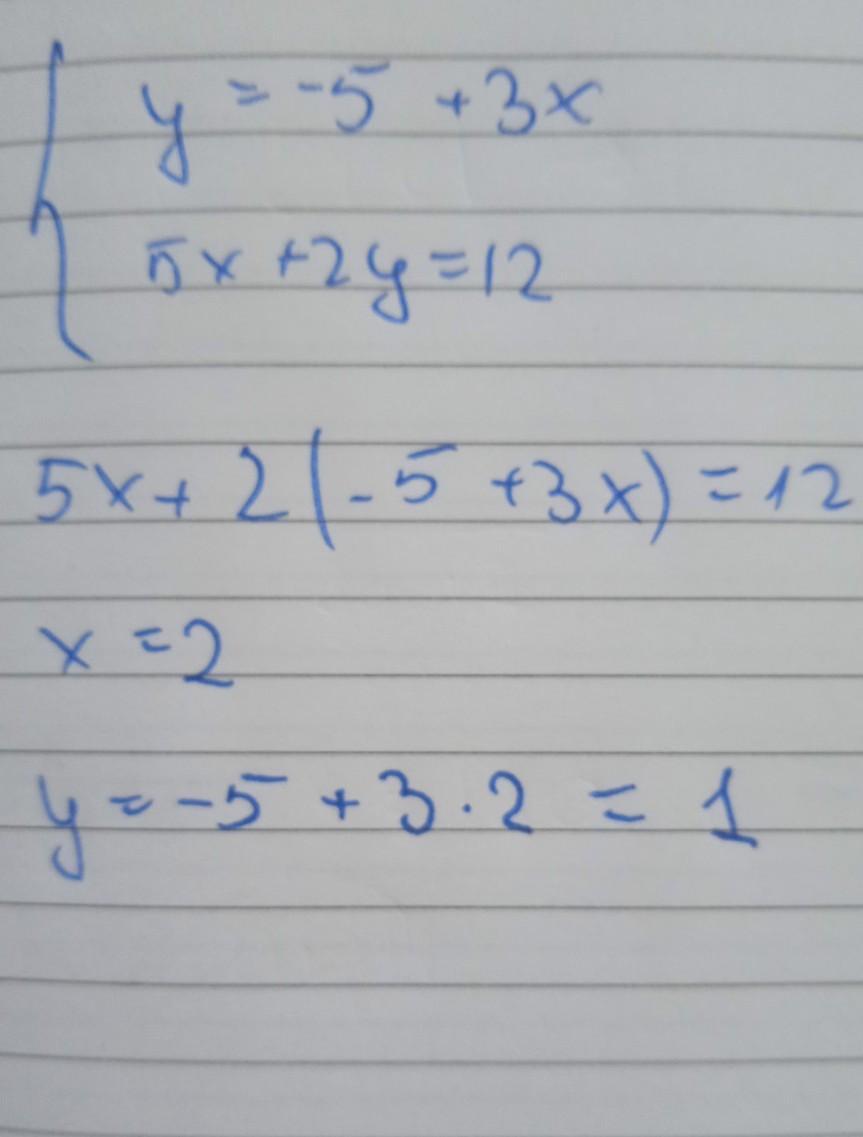 y = -5 + 3x
5x + 2y = 12
5x + 2(-5 + 3x) = 12
x = 2
y = -5 + 3 · 2 = 1